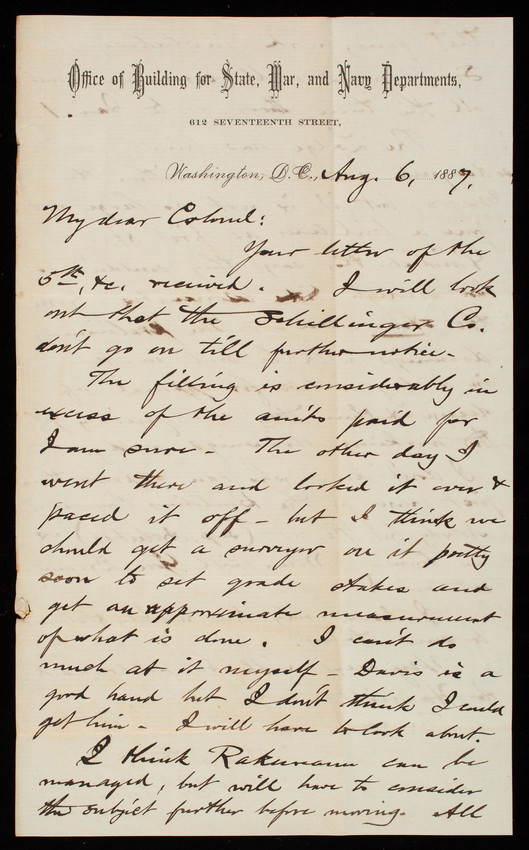 Office of Building for State, War, and Navy Departments,
612 SEVENTEENTH STREET,
Washington, D.C., Aug. 6, 1887.
My dear Colonel:
Your letter of the
5th, &c. received. I will look
out that the Schillinger Co.
don't go on till further notice.
The filling is considerably in
excess of the amts paid for
I am sure - The other day I
went there and looked it over &
paced it off - but I think we
should get a surveyor on it pretty
soon to set grade stakes and
get an approximate measurement
of what is done. I can't do
much at it myself - Davis is a
good hand but I don't think I could
get him - I will have to look about.
I think Rakemann can be
managed, but will have to consider
the subject further before moving. All